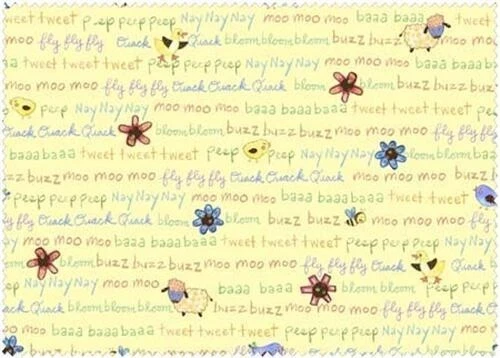 tweet tweet peep peep peep Nay Nay Nay moo moo moo baaa baaa tweet tweet
fly fly fly Quack Quack bloom bloom bloom buzz buzz moo moo
baaa baaa tweet tweet tweet peep peep peep Nay Nay Nay moo moo moo baaa
buzz moo moo fly fly fly Quack Quack Quack bloom bloom buzz buzz buzz
peep Nay Nay Nay moo moo moo baaa baaa baaa tweet tweet tweet
Quack Quack Quack bloom bloom buzz buzz buzz moo moo moo fly fly fly
baaa baaa tweet tweet tweet peep peep Nay Nay Nay moo moo moo
buzz buzz moo moo moo fly fly fly Quack Quack Quack bloom bloom bloom
peep peep Nay Nay Nay moo moo moo baaa baaa baaa tweet tweet
fly fly Quack Quack Quack bloom bloom buzz buzz moo moo moo
moo moo baaa baaa baaa tweet tweet tweet peep peep peep
bloom buzz buzz buzz moo moo moo fly fly fly Quack
tweet tweet peep peep Nay Nay Nay moo moo moo baaa baaa baaa
Quack bloom bloom bloom buzz buzz buzz moo moo moo fly fly fly Quack
moo moo baaa baaa baaa tweet tweet tweet peep peep peep Nay Nay Nay